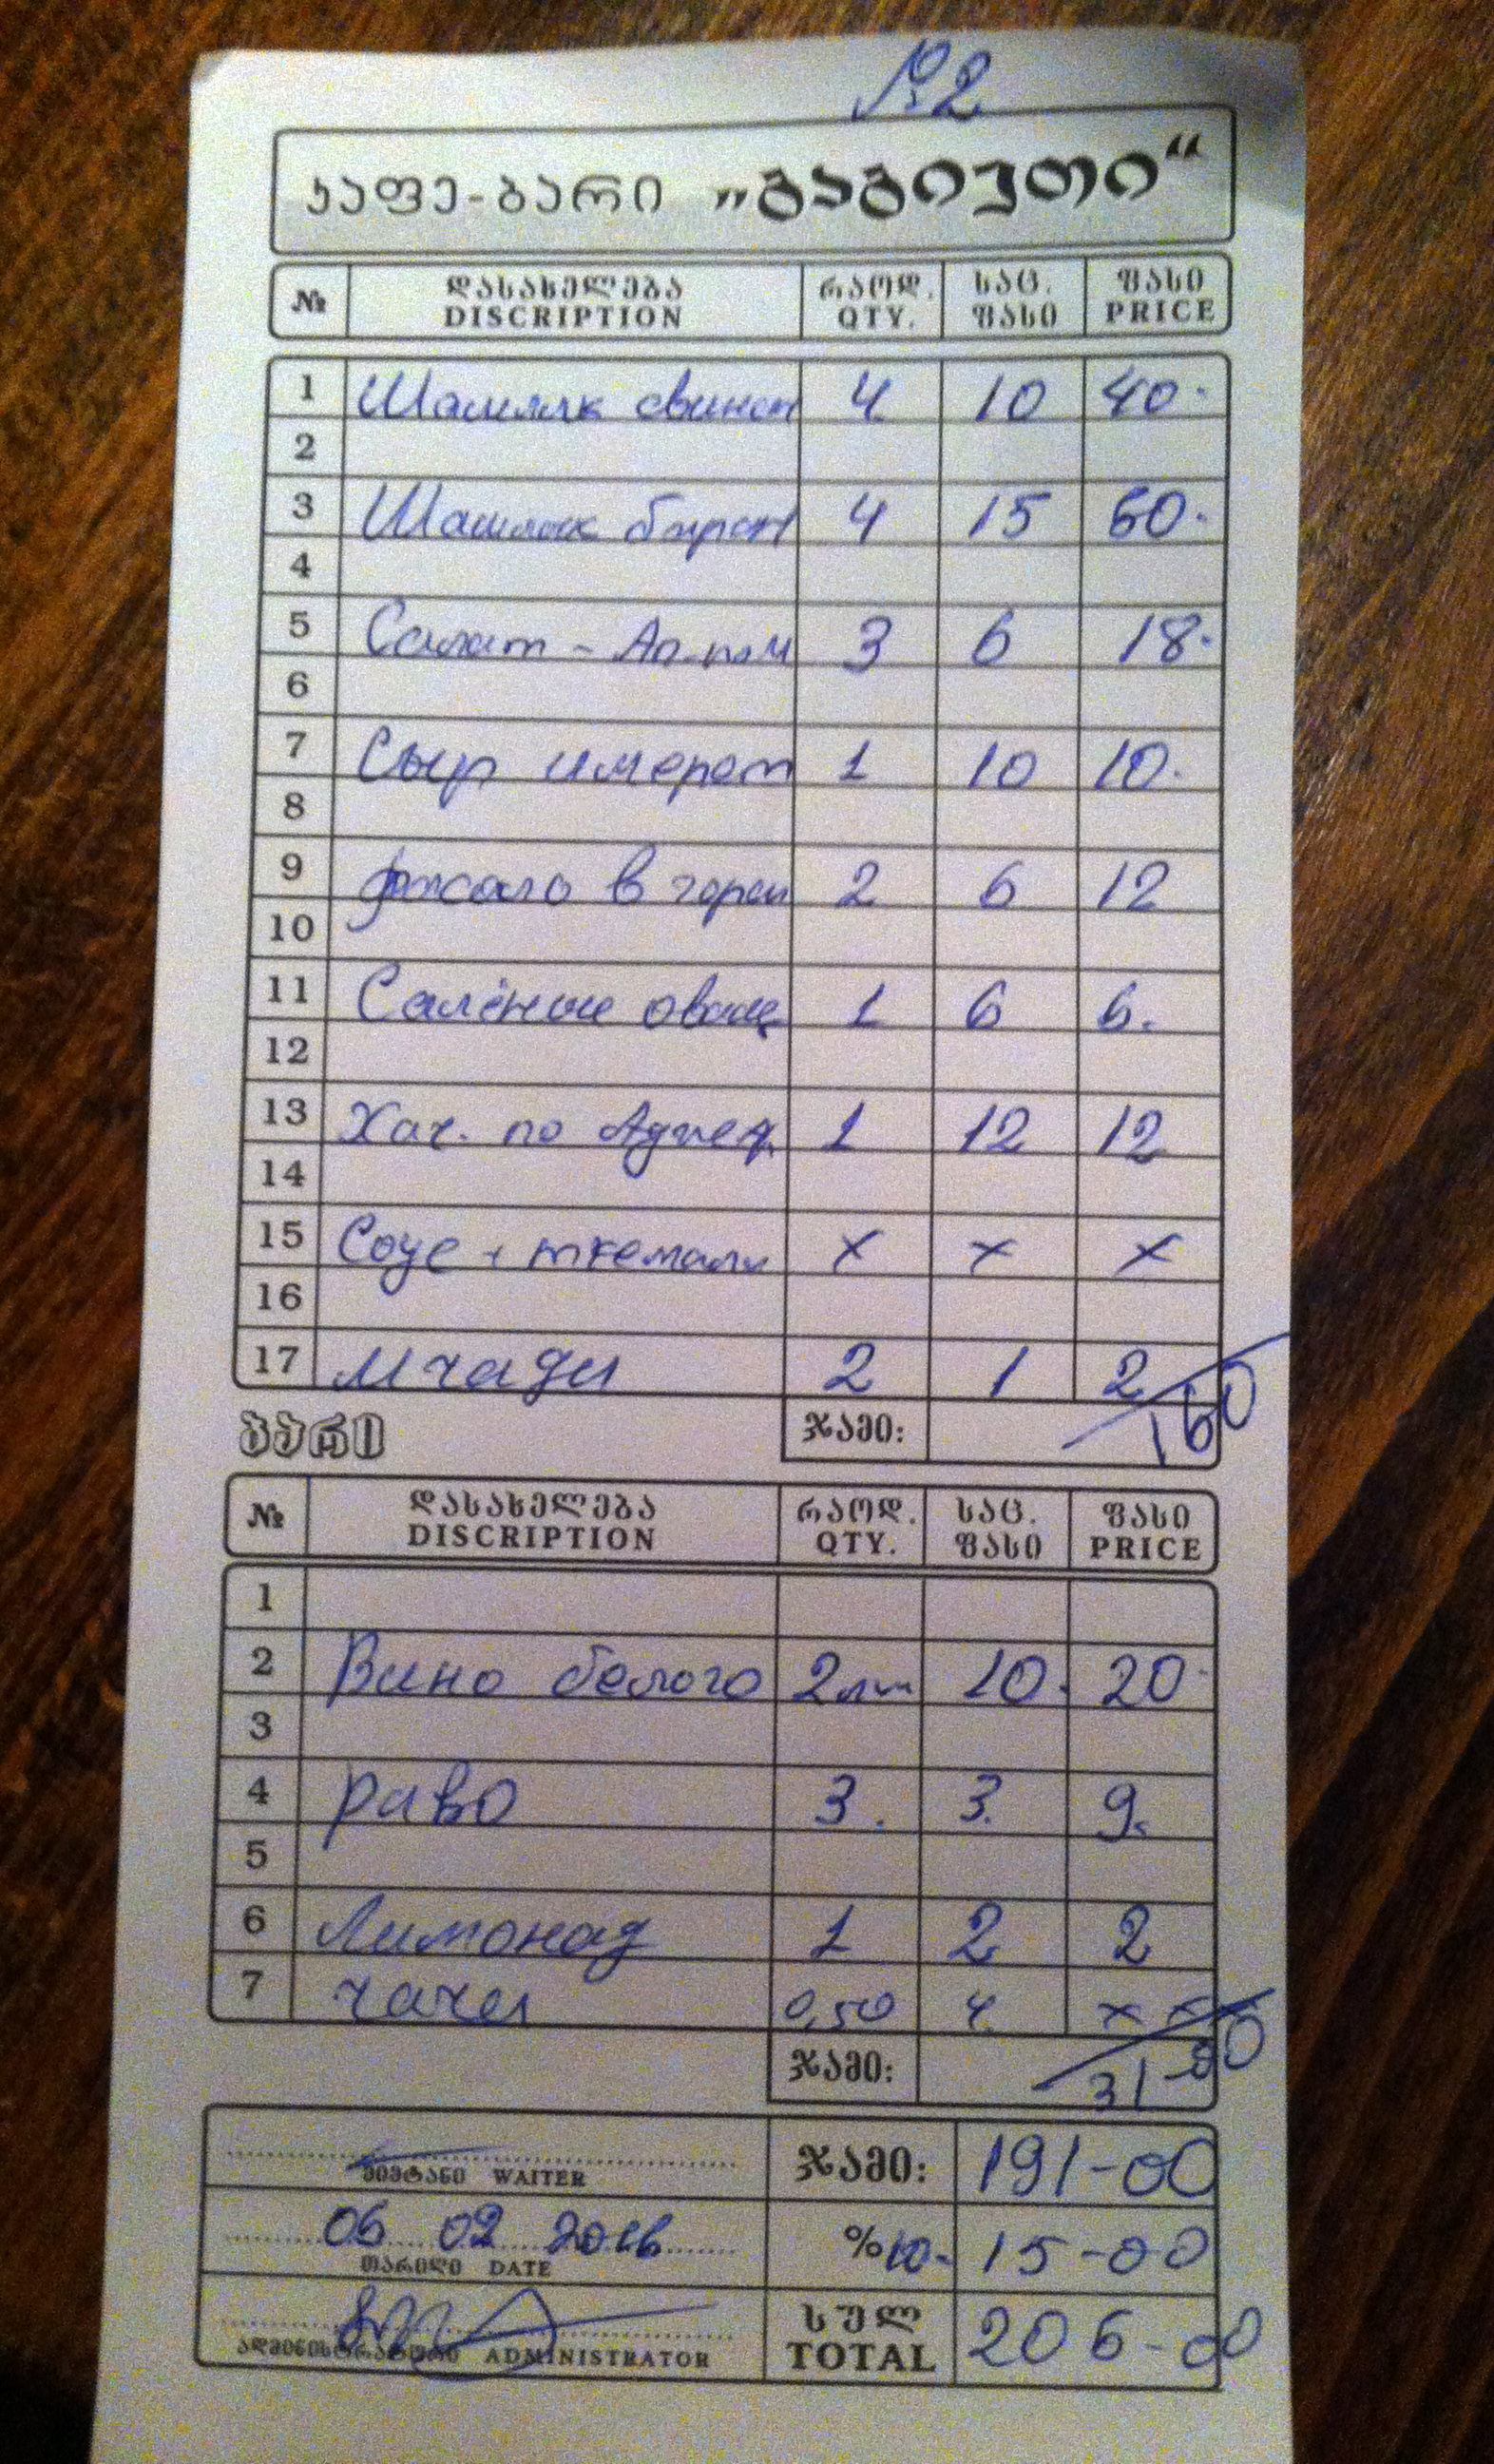 №2
კაფე-ბარი „გაგიუთი“
№ დასახელება DISCRIPTION რაოდ. QTY. საც. ფასი ფასი PRICE
1 Шашлик свинст 4 10 40.
2
3 Шашлик баран 4 15 60.
4
5 Салат - 3 6 18.
6
7 Сыр имерет 1 10 10.
8
9 в горш 2 6 12
10
11 Салёные оваще 1 6 6.
12
13 Хач. по Аджар. 1 12 12
14
15 Соус + ткемали x x x
16
17 мчади 2 1 2
ბარი ჯამი: 160
№ დასახელება DISCRIPTION რაოდ. QTY. საც. ფასი ფასი PRICE
1
2 Вино белого 2лит 10. 20
3
4 раво 3. 3. 9.
5
6 Лимонад 1 2 2
7 чачи 0,50 4. x x
ჯამი: 31-00
მიმტანი WAITER ჯამი: 191-00
06 02 2016 %10- 15-00
თარიღი DATE
სულ TOTAL 206-00
ადმინისტრატორი ADMINISTRATOR